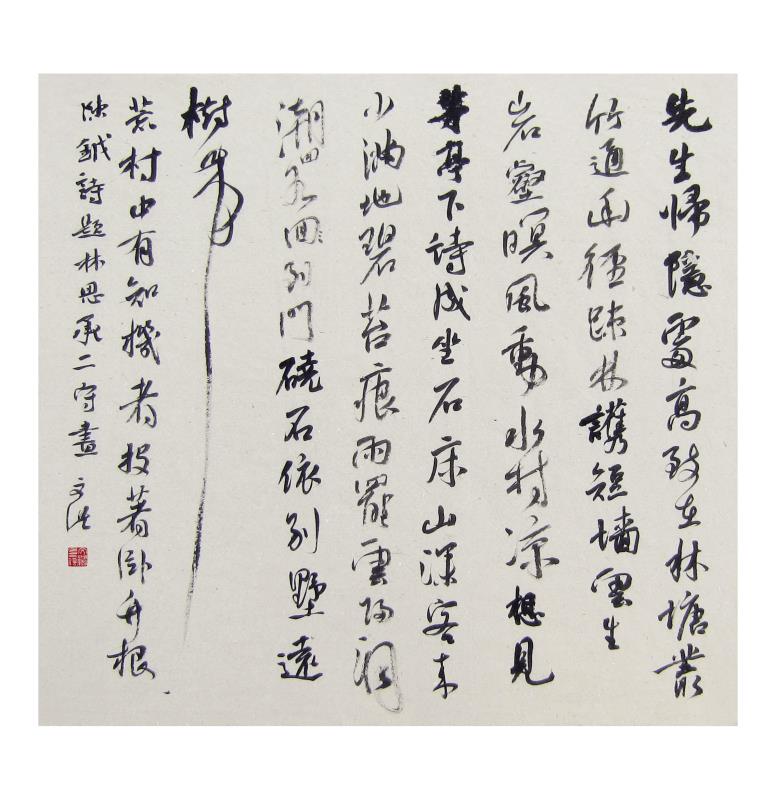 先生歸隱處高致在林塘叢
竹通幽徑踈林護短墻雲生
岩壑暝風動水村凉想見
茅亭下詩成坐石床山深客來
少滿地碧苔痕雨罷雲歸洞
潮回列門磽石依别墅遠
樹
荒村中有知機者投著卧舟根
陳鉞詩題林思承二守畫